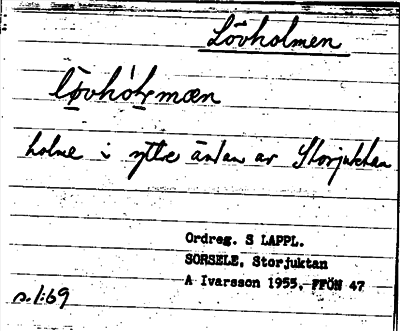 Lövholmen
lövhòlmæn
holme i yttre ändan av Storjuktan
Ordreg. S LAPPL.
SORSELE, Storjuktan
A Ivarsson 1955, FFÖN 47
s.1:69